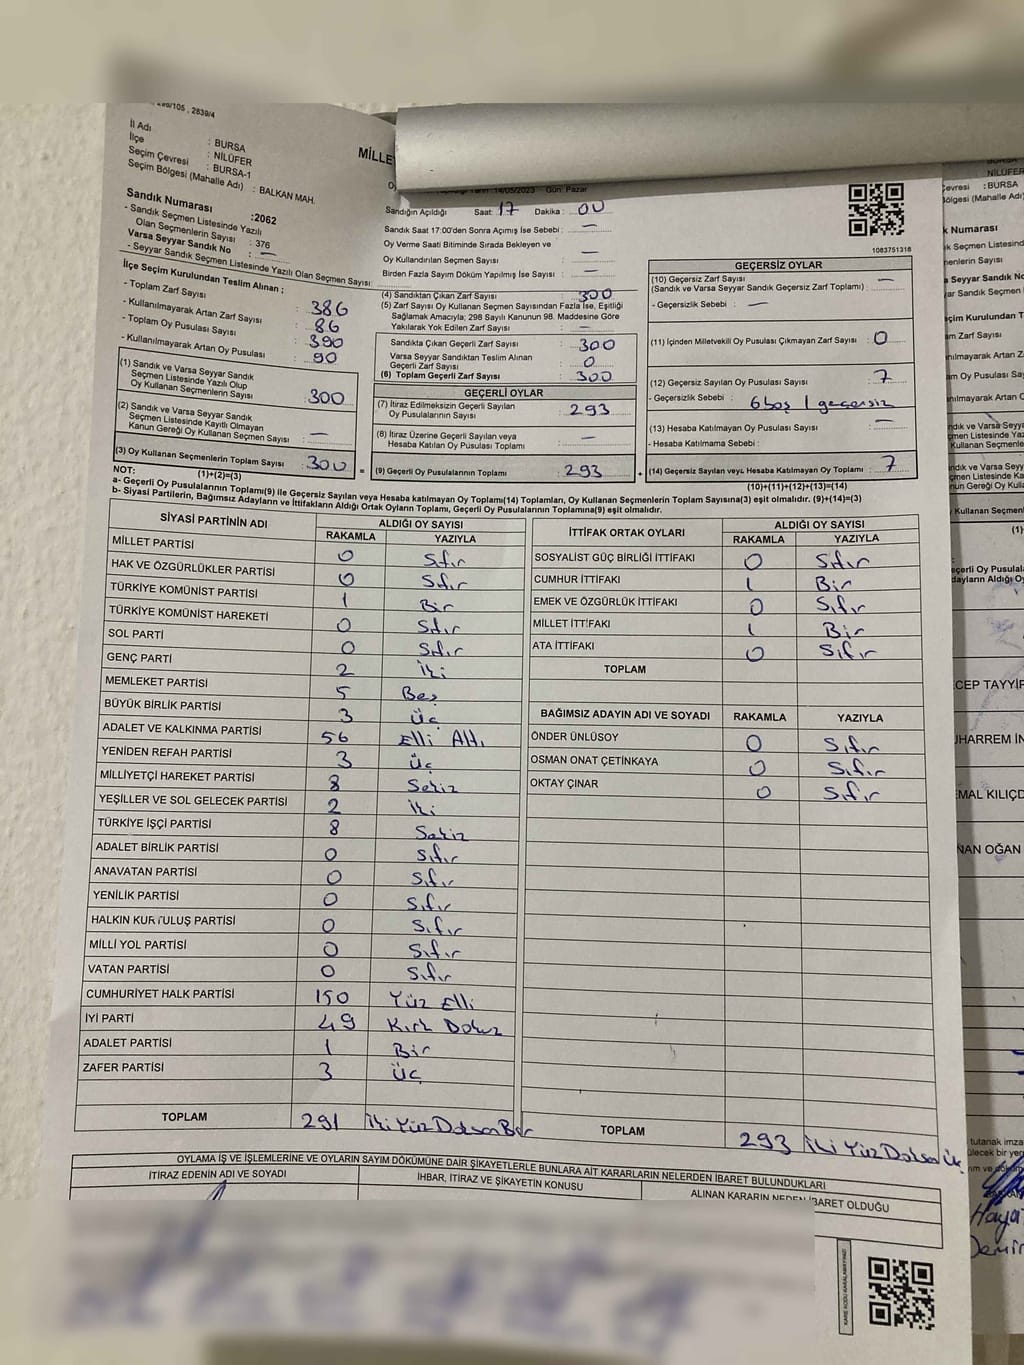 İl Adı : BURSA
İlçe : NİLÜFER
Seçim Çevresi : BURSA-1
Seçim Bölgesi (Mahalle Adı) : BALKAN MAH.
Sandık Numarası :2062
- Sandık Seçmen Listesinde Yazılı
Olan Seçmenlerin Sayısı : 376
Varsa Seyyar Sandık No : —
- Seyyar Sandık Seçmen Listesinde Yazılı Olan Seçmen Sayısı :
İlçe Seçim Kurulundan Teslim Alınan ;
- Toplam Zarf Sayısı : 386
- Kullanılmayarak Artan Zarf Sayısı : 86
- Toplam Oy Pusulası Sayısı : 390
- Kullanılmayarak Artan Oy Pusulası : 90
(1) Sandık ve Varsa Seyyar Sandık
Seçmen Listesinde Yazılı Olup
Oy Kullanan Seçmenlerin Sayısı : 300
(2) Sandık ve Varsa Seyyar Sandık
Seçmen Listesinde Kayıtlı Olmayan
Kanun Gereği Oy Kullanan Seçmen Sayısı : —
(3) Oy Kullanan Seçmenlerin Toplam Sayısı : 300
MİLLE
14/05/2023 Gün: Pazar
Sandığın Açıldığı Saat: 17 Dakika : 00
Sandık Saat 17:00'den Sonra Açımış İse Sebebi : —
Oy Verme Saati Bitiminde Sırada Bekleyen ve
Oy Kullandırılan Seçmen Sayısı : —
Birden Fazla Sayım Döküm Yapılmış İse Sayısı : —
(4) Sandıktan Çıkan Zarf Sayısı : 300
(5) Zarf Sayısı Oy Kullanan Seçmen Sayısından Fazla İse, Eşitliği
Sağlamak Amacıyla; 298 Sayılı Kanunun 98. Maddesine Göre
Yakılarak Yok Edilen Zarf Sayısı : —
Sandıkta Çıkan Geçerli Zarf Sayısı : 300
Varsa Seyyar Sandıktan Teslim Alınan
Geçerli Zarf Sayısı : 0
(6) Toplam Geçerli Zarf Sayısı : 300
GEÇERLİ OYLAR
(7) İtiraz Edilmeksizin Geçerli Sayılan
Oy Pusulalarının Sayısı : 293
(8) İtiraz Üzerine Geçerli Sayılan veya
Hesaba Katılan Oy Pusulası Toplamı : —
(9) Geçerli Oy Pusulalarının Toplamı : 293
1083751316
GEÇERSİZ OYLAR
(10) Geçersiz Zarf Sayısı
(Sandık ve Varsa Seyyar Sandık Geçersiz Zarf Toplamı) : —
- Geçersizlik Sebebi : —
(11) İçinden Milletvekili Oy Pusulası Çıkmayan Zarf Sayısı : 0
(12) Geçersiz Sayılan Oy Pusulası Sayısı : 7
- Geçersizlik Sebebi : 6 boş 1 geçersiz
(13) Hesaba Katılmayan Oy Pusulası Sayısı : —
- Hesaba Katılmama Sebebi :
(14) Geçersiz Sayılan veya Hesaba Katılmayan Oy Toplamı : 7
NOT: (1)+(2)=(3)
(10)+(11)+(12)+(13)=(14)
a- Geçerli Oy Pusulalarının Toplamı(9) ile Geçersiz Sayılan veya Hesaba katılmayan Oy Toplamı(14) Toplamları, Oy Kullanan Seçmenlerin Toplam Sayısına(3) eşit olmalıdır. (9)+(14)=(3)
b- Siyasi Partilerin, Bağımsız Adayların ve İttifakların Aldığı Ortak Oyların Toplamı, Geçerli Oy Pusulalarının Toplamına(9) eşit olmalıdır.
SİYASİ PARTİNİN ADI ALDIĞI OY SAYISI
RAKAMLA YAZIYLA
MİLLET PARTİSİ 0 Sıfır
HAK VE ÖZGÜRLÜKLER PARTİSİ 0 Sıfır
TÜRKİYE KOMÜNİST PARTİSİ 1 Bir
TÜRKİYE KOMÜNİST HAREKETİ 0 Sıfır
SOL PARTİ 0 Sıfır
GENÇ PARTİ 2 İki
MEMLEKET PARTİSİ 5 Beş
BÜYÜK BİRLİK PARTİSİ 3 Üç
ADALET VE KALKINMA PARTİSİ 56 Elli Altı
YENİDEN REFAH PARTİSİ 3 Üç
MİLLİYETÇİ HAREKET PARTİSİ 8 Sekiz
YEŞİLLER VE SOL GELECEK PARTİSİ 2 İki
TÜRKİYE İŞÇİ PARTİSİ 8 Sekiz
ADALET BİRLİK PARTİSİ 0 Sıfır
ANAVATAN PARTİSİ 0 Sıfır
YENİLİK PARTİSİ 0 Sıfır
HALKIN KURTULUŞ PARTİSİ 0 Sıfır
MİLLİ YOL PARTİSİ 0 Sıfır
VATAN PARTİSİ 0 Sıfır
CUMHURİYET HALK PARTİSİ 150 Yüz Elli
İYİ PARTİ 49 Kırk Dokuz
ADALET PARTİSİ 1 Bir
ZAFER PARTİSİ 3 Üç
TOPLAM 291 İki Yüz Doksan Bir
İTTİFAK ORTAK OYLARI ALDIĞI OY SAYISI
RAKAMLA YAZIYLA
SOSYALİST GÜÇ BİRLİĞİ İTTİFAKI 0 Sıfır
CUMHUR İTTİFAKI 1 Bir
EMEK VE ÖZGÜRLÜK İTTİFAKI 0 Sıfır
MİLLET İTTİFAKI 1 Bir
ATA İTTİFAKI 0 Sıfır
TOPLAM
BAĞIMSIZ ADAYIN ADI VE SOYADI RAKAMLA YAZIYLA
ÖNDER ÜNLÜSOY 0 Sıfır
OSMAN ONAT ÇETİNKAYA 0 Sıfır
OKTAY ÇINAR 0 Sıfır
TOPLAM 293 İki Yüz Doksan Üç
OYLAMA İŞ VE İŞLEMLERİNE VE OYLARIN SAYIM DÖKÜMÜNE DAİR ŞİKAYETLERLE BUNLARA AİT KARARLARIN NELERDEN İBARET BULUNDUKLARI
İTİRAZ EDENİN ADI VE SOYADI İHBAR, İTİRAZ VE ŞİKAYETİN KONUSU ALINAN KARARIN NEDEN İBARET OLDUĞU
NİLÜFER
: BURSA
k Numarası
CEP TAYYİP
UHARREM İN
EMAL KILIÇD
NAN OĞAN